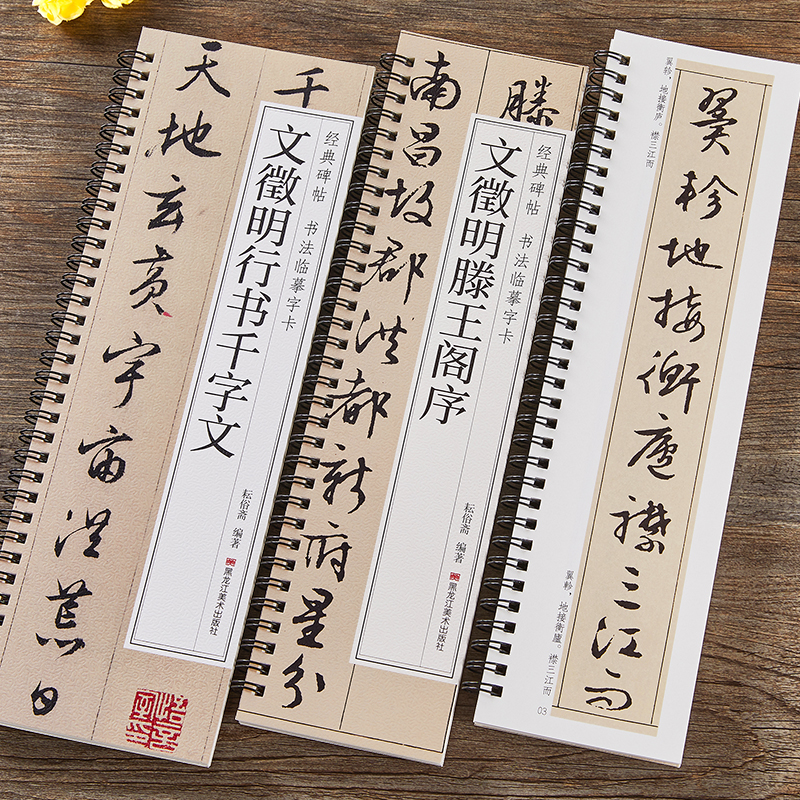 天地玄黃宇宙洪荒日
千
经典碑帖 书法临摹字卡
文徵明行书千字文
耘俗斋 编著
黑龙江美术出版社
南昌故郡洪都新府星分
滕
经典碑帖 书法临摹字卡
文徵明滕王阁序
耘俗斋 编著
黑龙江美术出版社
翼轸，地接衡庐。襟三江而
翼軫地接衡廬襟三江而
翼軫，地接衡廬。襟三江而
03